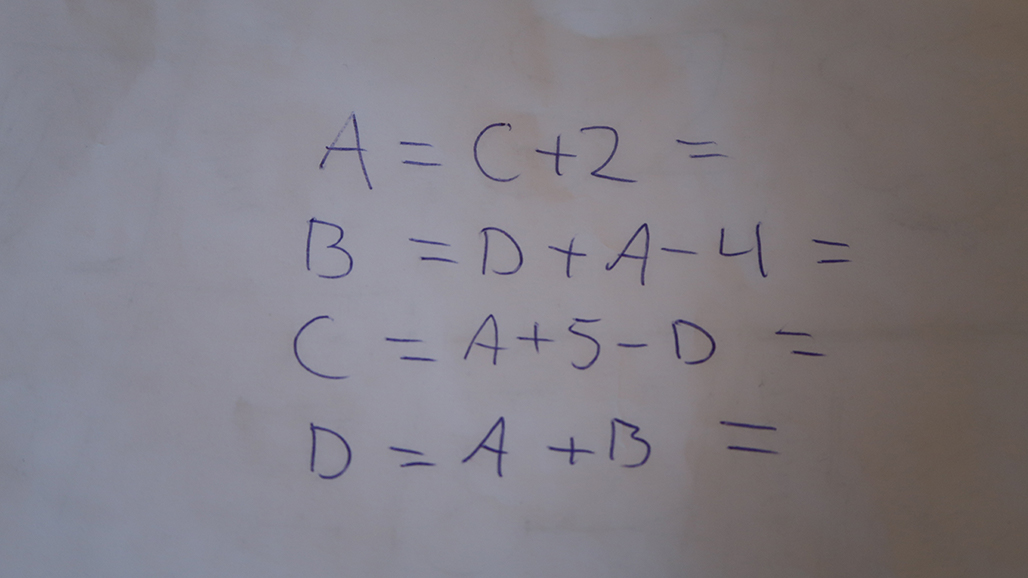 A = C + 2 =
B = D + A - 4 =
C = A + 5 - D =
D = A + B =